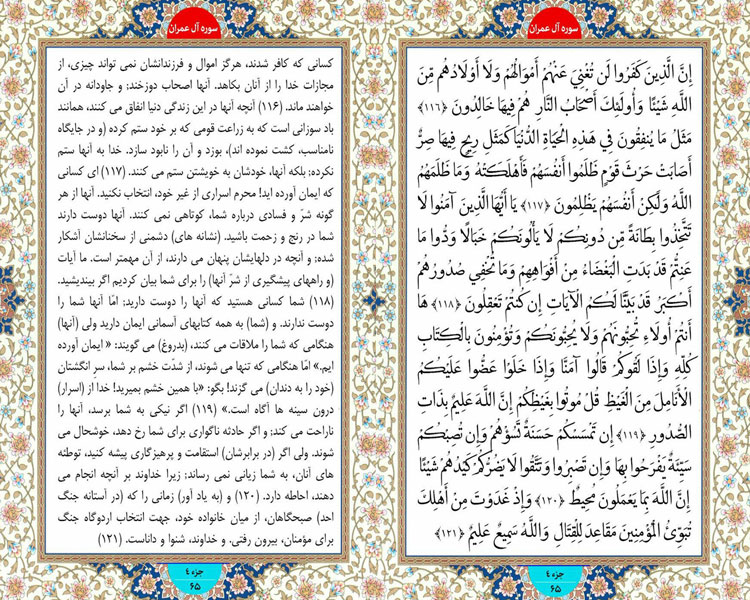 سوره آل عمران
إِنَّ الَّذِينَ كَفَرُوا لَن تُغْنِيَ عَنْهُمْ أَمْوَالُهُمْ وَلَا أَوْلَادُهُم مِّنَ
اللَّهِ شَيْئًا وَأُولَٰئِكَ أَصْحَابُ النَّارِ هُمْ فِيهَا خَالِدُونَ ﴿١١٦﴾
مَثَلُ مَا يُنفِقُونَ فِي هَٰذِهِ الْحَيَاةِ الدُّنْيَا كَمَثَلِ رِيحٍ فِيهَا صِرٌّ
أَصَابَتْ حَرْثَ قَوْمٍ ظَلَمُوا أَنفُسَهُمْ فَأَهْلَكَتْهُ وَمَا ظَلَمَهُمُ
اللَّهُ وَلَٰكِنْ أَنفُسَهُمْ يَظْلِمُونَ ﴿١١٧﴾ يَا أَيُّهَا الَّذِينَ آمَنُوا لَا
تَتَّخِذُوا بِطَانَةً مِّن دُونِكُمْ لَا يَأْلُونَكُمْ خَبَالًا وَدُّوا مَا
عَنِتُّمْ قَدْ بَدَتِ الْبَغْضَاءُ مِنْ أَفْوَاهِهِمْ وَمَا تُخْفِي صُدُورُهُمْ
أَكْبَرُ قَدْ بَيَّنَّا لَكُمُ الْآيَاتِ إِن كُنتُمْ تَعْقِلُونَ ﴿١١٨﴾ هَا
أَنتُمْ أُولَاءِ تُحِبُّونَهُمْ وَلَا يُحِبُّونَكُمْ وَتُؤْمِنُونَ بِالْكِتَابِ
كُلِّهِ وَإِذَا لَقُوكُمْ قَالُوا آمَنَّا وَإِذَا خَلَوْا عَضُّوا عَلَيْكُمُ
الْأَنَامِلَ مِنَ الْغَيْظِ قُلْ مُوتُوا بِغَيْظِكُمْ إِنَّ اللَّهَ عَلِيمٌ بِذَاتِ
الصُّدُورِ ﴿١١٩﴾ إِن تَمْسَسْكُمْ حَسَنَةٌ تَسُؤْهُمْ وَإِن تُصِبْكُمْ
سَيِّئَةٌ يَفْرَحُوا بِهَا وَإِن تَصْبِرُوا وَتَتَّقُوا لَا يَضُرُّكُمْ كَيْدُهُمْ شَيْئًا
إِنَّ اللَّهَ بِمَا يَعْمَلُونَ مُحِيطٌ ﴿١٢٠﴾ وَإِذْ غَدَوْتَ مِنْ أَهْلِكَ
تُبَوِّئُ الْمُؤْمِنِينَ مَقَاعِدَ لِلْقِتَالِ وَاللَّهُ سَمِيعٌ عَلِيمٌ ﴿١٢١﴾
جزء ٤
۶۵
سوره آل عمران
کسانی که کافر شدند، هرگز اموال و فرزندانشان نمی تواند چیزی، از
مجازات خدا را از آنان بکاهد. آنها اصحاب دوزخند؛ و جاودانه در آن
خواهند ماند. (۱۱۶) آنچه آنها در این زندگی دنیا انفاق می کنند، همانند
باد سوزانی است که به زراعت قومی که بر خود ستم کرده (و در جایگاه
نامناسب، کشت نموده اند)، بوزد و آن را نابود سازد. خدا به آنها ستم
نکرده؛ بلکه آنها، خودشان به خویشتن ستم می کنند. (۱۱۷) ای کسانی
که ایمان آورده اید! محرم اسراری از غیر خود، انتخاب نکنید. آنها از هر
گونه شرّ و فسادی درباره شما، کوتاهی نمی کنند. آنها دوست دارند
شما در رنج و زحمت باشید. (نشانه های) دشمنی از سخنانشان آشکار
شده؛ و آنچه در دلهایشان پنهان می دارند، از آن مهمتر است. ما آیات
(و راههای پیشگیری از شرّ آنها) را برای شما بیان کردیم اگر بیندیشید.
(۱۱۸) شما کسانی هستید که آنها را دوست دارید؛ امّا آنها شما را
دوست ندارند. و (شما) به همه کتابهای آسمانی ایمان دارید ولی (آنها)
هنگامی که شما را ملاقات می کنند، (بدروغ) می گویند: « ایمان آورده
ایم.» امّا هنگامی که تنها می شوند، از شدّت خشم بر شما، سر انگشتان
(خود را به دندان) می گزند! بگو: «با همین خشم بمیرید! خدا از (اسرار)
درون سینه ها آگاه است.» (۱۱۹) اگر نیکی به شما برسد، آنها را
ناراحت می کند؛ و اگر حادثه ناگواری برای شما رخ دهد، خوشحال می
شوند. ولی اگر (در برابرشان) استقامت و پرهیزگاری پیشه کنید، توطئه
های آنان، به شما زیانی نمی رساند؛ زیرا خداوند بر آنچه انجام می
دهند، احاطه دارد. (۱۲۰) و (به یاد آور) زمانی را که (در آستانه جنگ
احد) صبحگاهان، از میان خانواده خود، جهت انتخاب اردوگاه جنگ
برای مؤمنان، بیرون رفتی. و خداوند، شنوا و داناست. (۱۲۱)
جزء ٤
۶۵